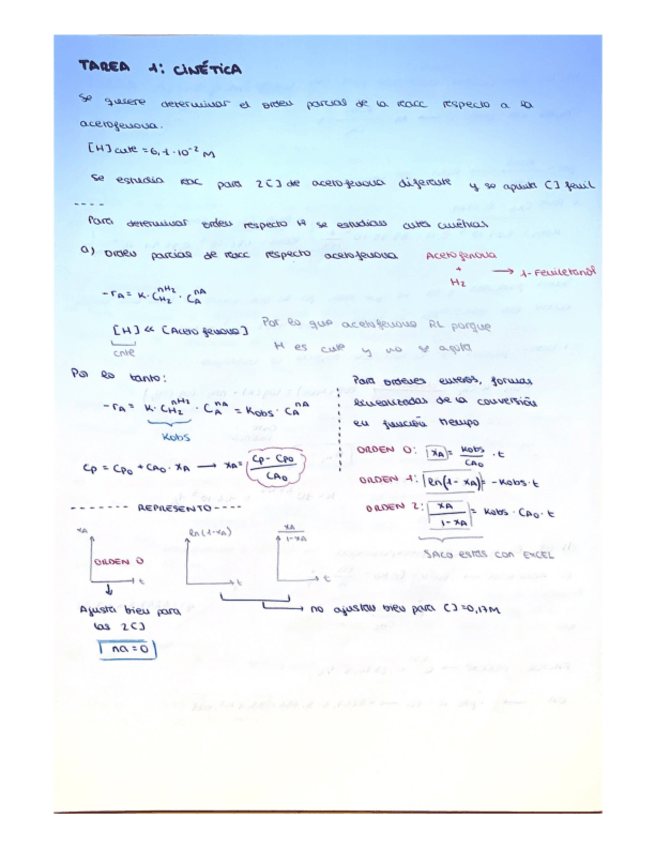 TAREA 1: CINÉTICA
Se quiere determinar el orden parcial de la reacc respecto a la
acetofenona.
[H] cnte = 6,1·10⁻² M
Se estudia reac para 2 [] de acetofenona diferente y se apunta [] fenil
----
Para determinar orden respecto H se estudian otras cinéticas
a) Orden parcial de reacc respecto acetofenona
Acetofenona
+
H₂
→ 1-Feniletanol
-rA = K · C_H₂^nH₂ · C_A^nA
[H] << [Acetofenona]
cnte
Por lo que acetofenona RL porque
H es cnte y no se agota
Por lo tanto:
-rA = K · C_H₂^nH₂ · C_A^nA = Kobs · C_A^nA
Kobs
Cp = Cp₀ + CA₀ · XA → XA = (Cp - Cp₀) / CA₀
Para ordenes enteros, formas
linealizadas de la conversión
en función tiempo
ORDEN 0: XA = Kobs / CA₀ · t
ORDEN 1: ln(1 - XA) = -Kobs · t
ORDEN 2: XA / (1 - XA) = Kobs · CA₀ · t
SACO ESTAS CON EXCEL
------- REPRESENTO ----
XA
ORDEN 0
t
ln(1-XA)
t
XA / (1-XA)
t
Ajusta bien para
las 2 []
no ajustan bien para [] = 0,17M
na = 0